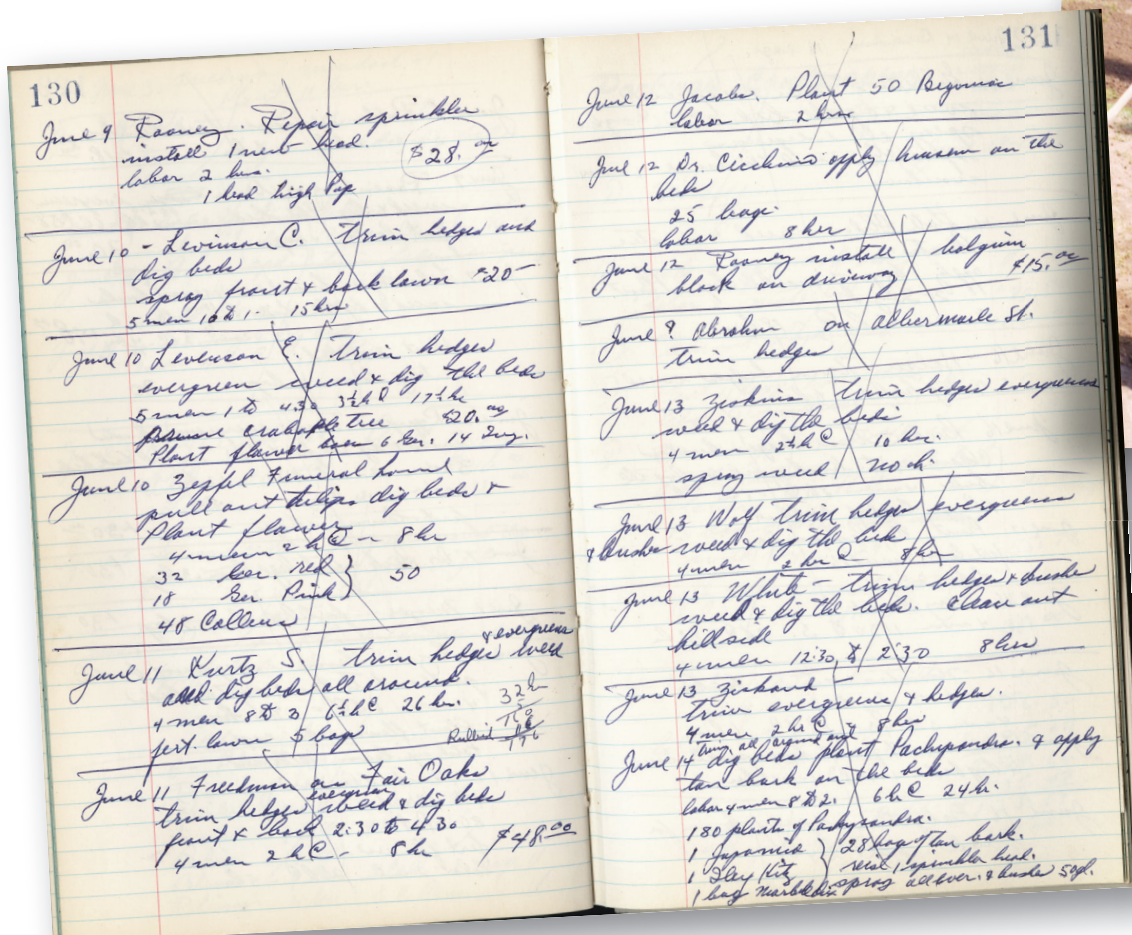 130
June 9 Rooney. Repair sprinkler
install 1 new head.
$28.00
labor 2 hrs.
1 head high Pop
June 10 - Levinson C. trim hedges and
dig beds
spray front & back lawn $20-
5 men 10 to 1- 15 hrs
June 10 Levenson E. trim hedges
evergreen weed & dig the beds
5 men 1 to 4:30 3½ h @ 17½ hr
crabapple tree $20.00
Plant flower 6 Ger. 14
June 10 Zeffel Funeral home
pull out tulips dig beds &
Plant flower
4 men 2 h @ - 8 hr
32 Ger. red
50
18 Ger. Pink
48 Colleus
& evergreens
June 11 Kurtz S. trim hedges weed
and dig beds all around.
4 men 8 to 3 6½ h @ 26 hr.
32 hr
5
160
16
176
fert. lawn 5 bags
June 11 Freedman on Fair Oaks
evergreen
trim hedges weed & dig beds
front & back 2:30 to 4:30
$48.00
4 men 2 h @ - 8 hr
131
June 12 Jacobs. Plant 50 Begonias
labor 2 hrs
June 12 Dr. apply on the
beds
25 bags.
labor 8 hrs
June 12 Rooney install belgium
block on driveway $15.00
June 9 Abrahm on Albermarle St.
trim hedges
June 13 Ziskins trim hedges evergreens
weed & dig the beds
4 men 2½ h @ 10 hr.
spray weed no ch.
June 13 Wolf trim hedges evergreens
& bushes weed & dig the beds
4 men 2 hr @ 8 hr
June 13 White - trim hedges & bushes
weed & dig the beds. Clean out
hillside
4 men 12:30 to 2:30 8 hrs
June 13 Ziskand -
trim evergreens & hedges.
4 men 2 hr @ 8 hrs
trim all around and
June 14 dig beds plant Pachysandra. & apply
tan bark on the beds
labor 4 men 8 to 2. 6 h @ 24 h.
180 plants of Pachysandra.
1 Japonica
28 bags of tan bark.
1 Iley
1 sprinkler head.
1 bag
spray all over. & bushes 50 gl.